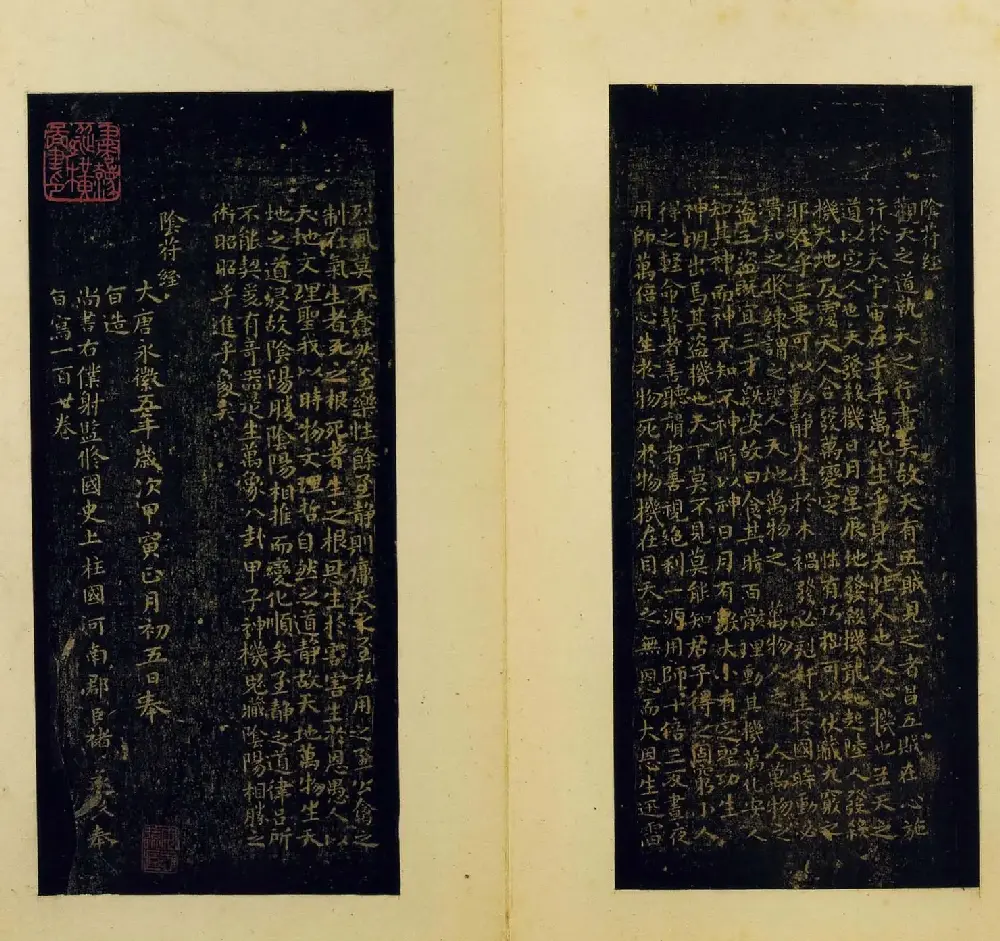 陰符經
觀天之道執天之行盡矣故天有五賊見之者昌五賊在心施
行於天宇宙在乎手萬化生乎身天性人也人心機也立天之
道以定人也天發殺機日月星辰地發殺機龍蛇起陸人發殺
機天地反覆天人合發萬變定性有巧拙可以伏藏九竅之
邪在乎三要可以動靜火生於木禍發必剋奸生於國時動必
潰知之脩鍊謂之聖人天地萬物之萬物人之人萬物之
盜三盜既宜三才既安故曰食其時百骸理動其機萬化安人
知其神而神不知不神所以神日月有數大小有定聖功生
神明出焉其盜機也天下莫不見莫能知君子得之固窮小人
得之輕命瞽者善聽聾者善視絕利一源用師十倍三反晝夜
用師萬倍心生於物死於物機在目天之無恩而大恩生迅雷
烈風莫不蠢然至樂性餘至靜則廉天之至私用之至公禽之
制在氣生者死之根死者生之根恩生於害害生於恩愚人以
天地文理聖我以時物文理哲自然之道靜故天地萬物生天
地之道浸故陰陽勝陰陽相推而變化順矣至靜之道律呂所
不能契爰有奇器是生萬象八卦甲子神機鬼藏陰陽相勝之
術昭昭乎進乎象矣
陰符經
大唐永徽五年歲次甲寅正月初五日奉
旨造
尚書右僕射監修國史上柱國河南郡臣褚遂良奉
旨寫一百廿卷